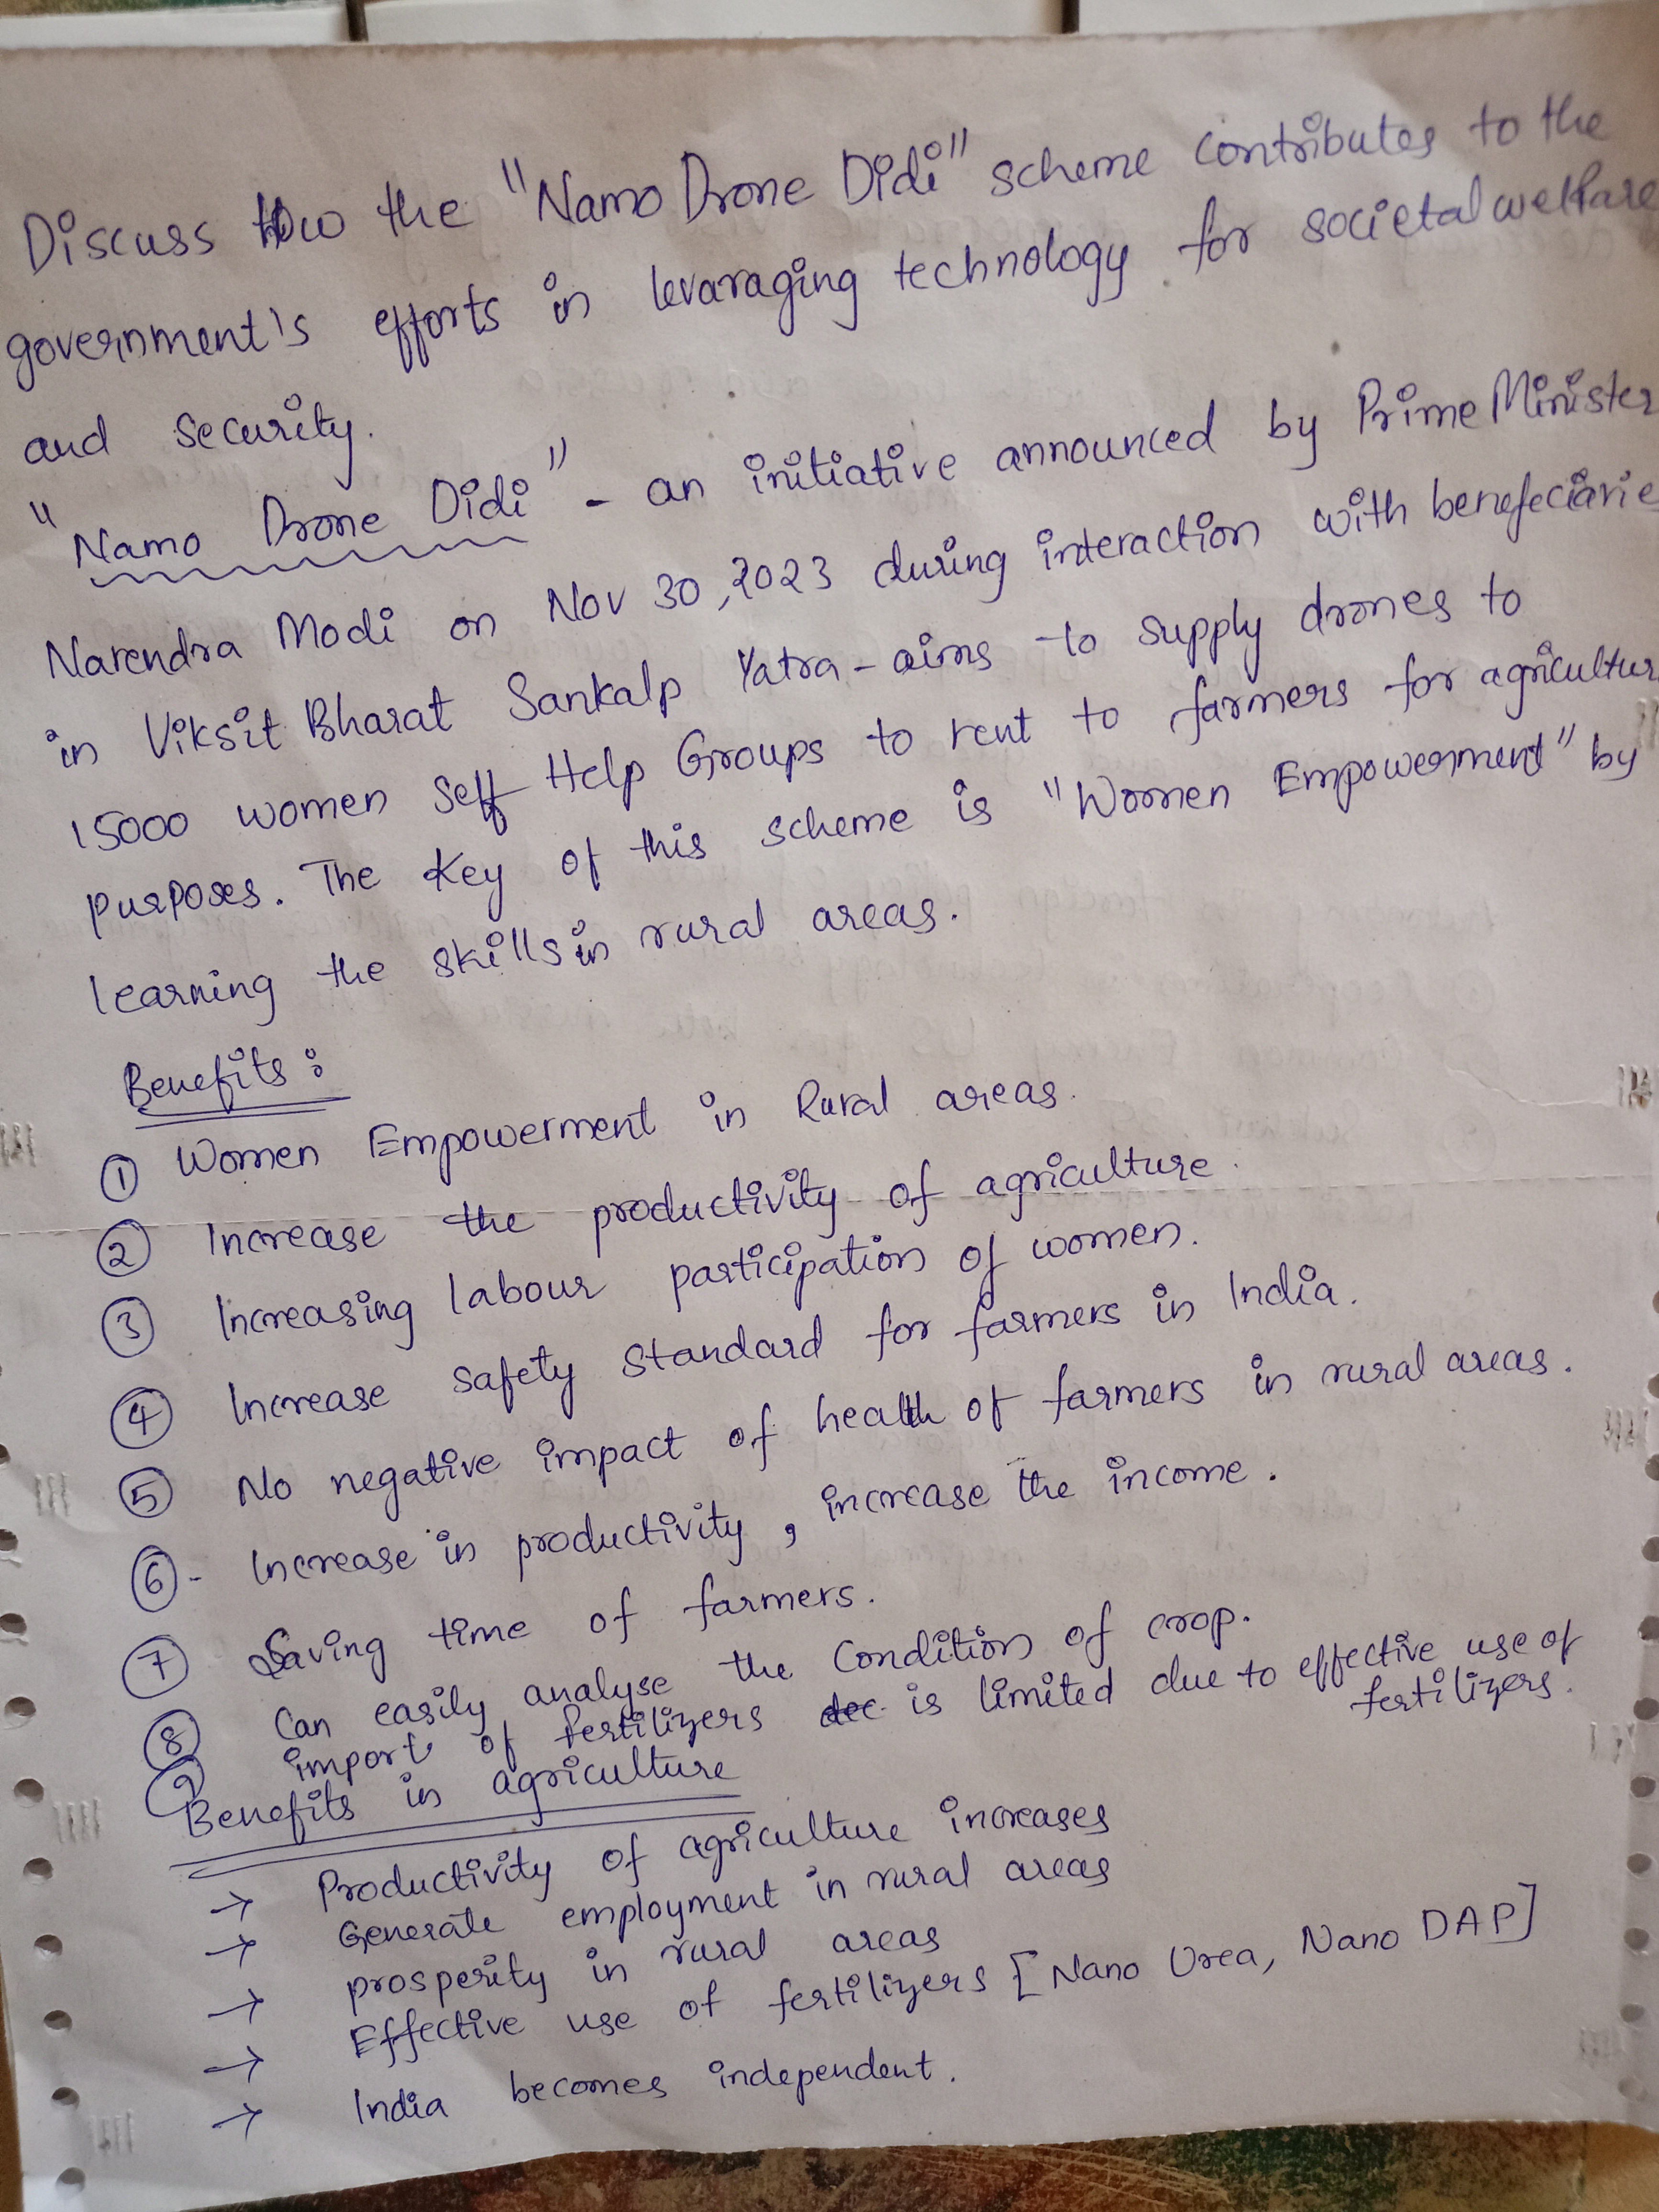 Discuss How the "Namo Drone Didi" scheme contributes to the
government's efforts in levaraging technology for societal welfare
and security.
"Namo Drone Didi" - an initiative announced by Prime Minister
Narendra Modi on Nov 30, 2023 during interaction with benefeciarie
in Viksit Bharat Sankalp Yatra - aims to supply drones to
15000 women Self Help Groups to rent to farmers for agricultur
purposes. The Key of this scheme is "Women Empowerment" by
learning the skills in rural areas.
Benefits :
① Women Empowerment in Rural areas.
② Increase the productivity of agriculture.
③ Increasing labour participation of women.
④ Increase safety standard for farmers in India.
⑤ No negative impact of health of farmers in rural areas.
⑥ - Increase in productivity, increase the income.
⑦ Saving time of farmers.
⑧ Can easily analyse the condition of crop.
⑨ import of fertilizers dec is limited due to effective use of
fertilizers.
Benefits in agriculture
→ Productivity of agriculture increases
→ Generate employment in rural areas
→ prosperity in rural areas
→ Effective use of fertilizers [Nano Urea, Nano DAP]
→ India becomes independent.